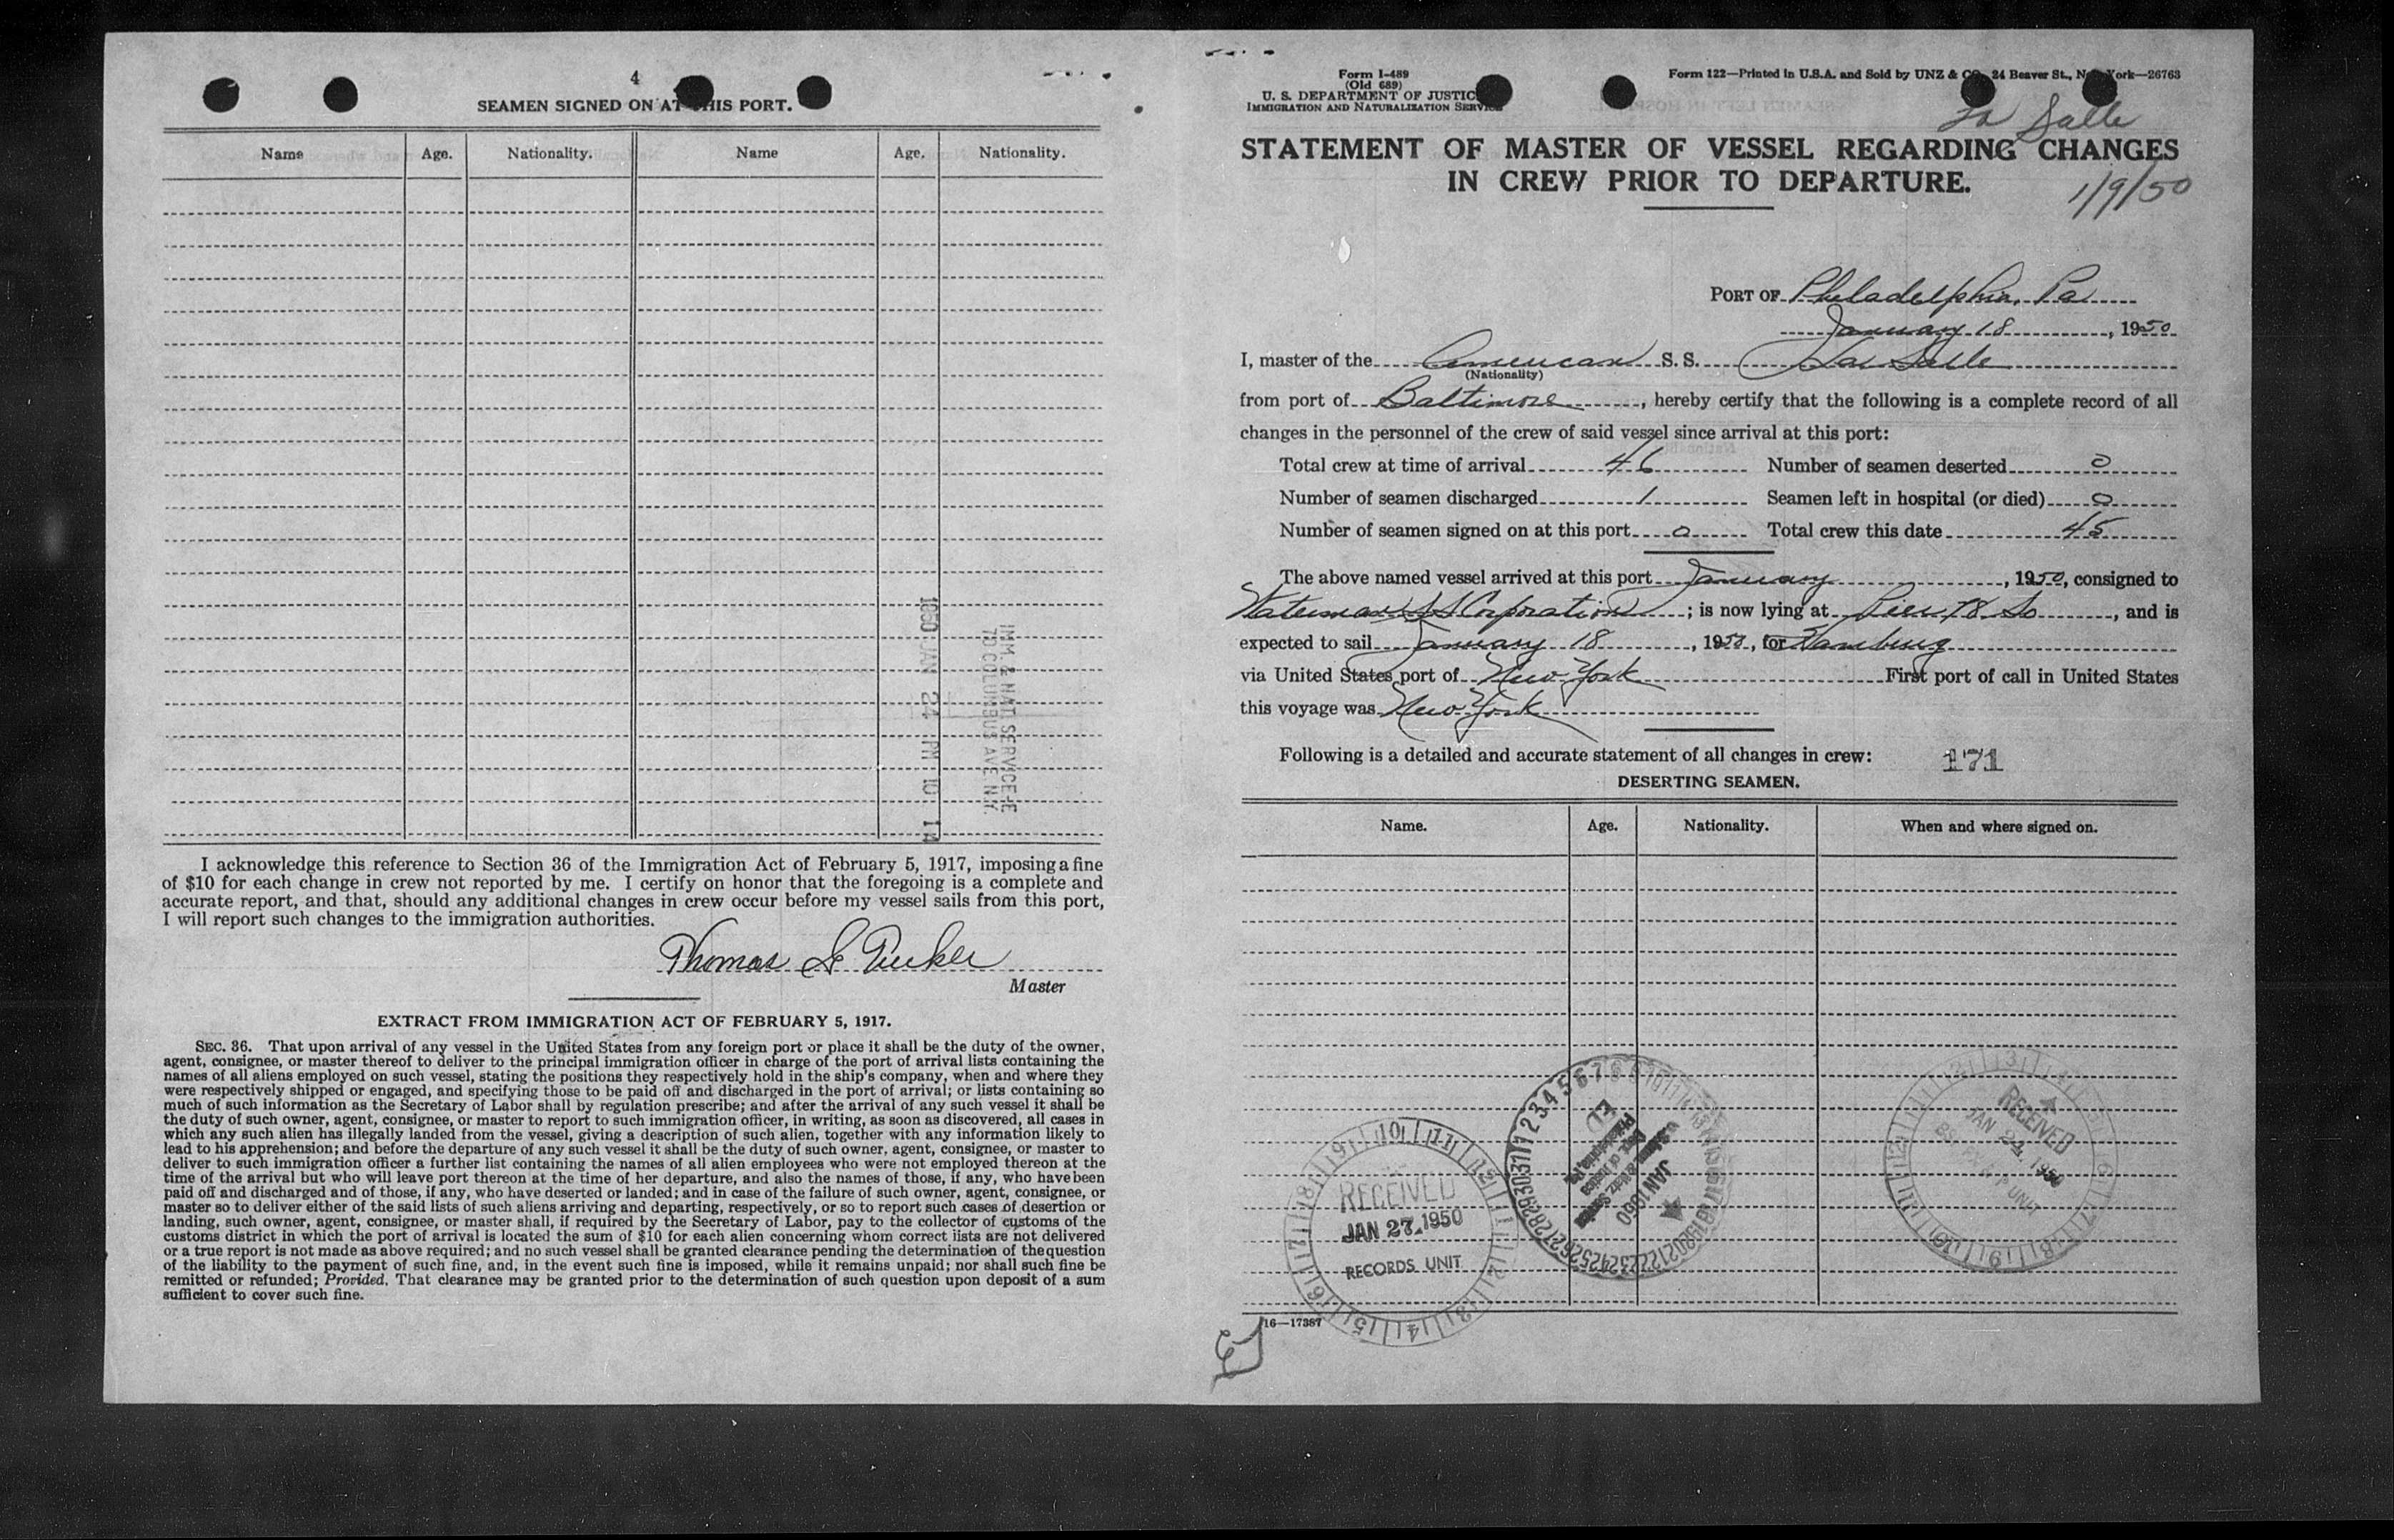 4
SEAMEN SIGNED ON AT THIS PORT.
Name Age. Nationality. Name Age. Nationality.
1950 JAN 24 PM 10 14
IMM. & NAT. SERVICE-E
70 COLUMBUS AVE N.Y.
I acknowledge this reference to Section 36 of the Immigration Act of February 5, 1917, imposing a fine
of $10 for each change in crew not reported by me. I certify on honor that the foregoing is a complete and
accurate report, and that, should any additional changes in crew occur before my vessel sails from this port,
I will report such changes to the immigration authorities.
Thomas
Master
EXTRACT FROM IMMIGRATION ACT OF FEBRUARY 5, 1917.
SEC. 36. That upon arrival of any vessel in the United States from any foreign port or place it shall be the duty of the owner,
agent, consignee, or master thereof to deliver to the principal immigration officer in charge of the port of arrival lists containing the
names of all aliens employed on such vessel, stating the positions they respectively hold in the ship's company, when and where they
were respectively shipped or engaged, and specifying those to be paid off and discharged in the port of arrival; or lists containing so
much of such information as the Secretary of Labor shall by regulation prescribe; and after the arrival of any such vessel it shall be
the duty of such owner, agent, consignee, or master to report to such immigration officer, in writing, as soon as discovered, all cases in
which any such alien has illegally landed from the vessel, giving a description of such alien, together with any information likely to
lead to his apprehension; and before the departure of any such vessel it shall be the duty of such owner, agent, consignee, or master to
deliver to such immigration officer a further list containing the names of all alien employees who were not employed thereon at the
time of the arrival but who will leave port thereon at the time of her departure, and also the names of those, if any, who have been
paid off and discharged and of those, if any, who have deserted or landed; and in case of the failure of such owner, agent, consignee, or
master so to deliver either of the said lists of such aliens arriving and departing, respectively, or so to report such cases of desertion or
landing, such owner, agent, consignee, or master shall, if required by the Secretary of Labor, pay to the collector of customs of the
customs district in which the port of arrival is located the sum of $10 for each alien concerning whom correct lists are not delivered
or a true report is not made as above required; and no such vessel shall be granted clearance pending the determination of the question
of the liability to the payment of such fine, and, in the event such fine is imposed, while it remains unpaid; nor shall such fine be
remitted or refunded; Provided, That clearance may be granted prior to the determination of such question upon deposit of a sum
sufficient to cover such fine.
Form I-489
(Old 689)
U. S. DEPARTMENT OF JUSTICE
IMMIGRATION AND NATURALIZATION SERVICE
Form 122—Printed in U.S.A. and Sold by UNZ & CO., 24 Beaver St., New York—26763
La Salle
STATEMENT OF MASTER OF VESSEL REGARDING CHANGES
IN CREW PRIOR TO DEPARTURE.
1/9/50
PORT OF Philadelphia, Pa
January 18, 1950
I, master of the American S. S. La Salle
(Nationality)
from port of Baltimore, hereby certify that the following is a complete record of all
changes in the personnel of the crew of said vessel since arrival at this port:
Total crew at time of arrival 46 Number of seamen deserted 0
Number of seamen discharged 1 Seamen left in hospital (or died) 0
Number of seamen signed on at this port 0 Total crew this date 45
The above named vessel arrived at this port January, 1950, consigned to
Waterman SS Corporation; is now lying at Pier 78 So, and is
expected to sail January 18, 1950, for Hamburg
via United States port of New York First port of call in United States
this voyage was New York
Following is a detailed and accurate statement of all changes in crew: 171
DESERTING SEAMEN.
Name. Age. Nationality. When and where signed on.
RECEIVED
JAN 27 1950
RECORDS UNIT
JAN 1950
RECEIVED
JAN 24 1950
16—17387